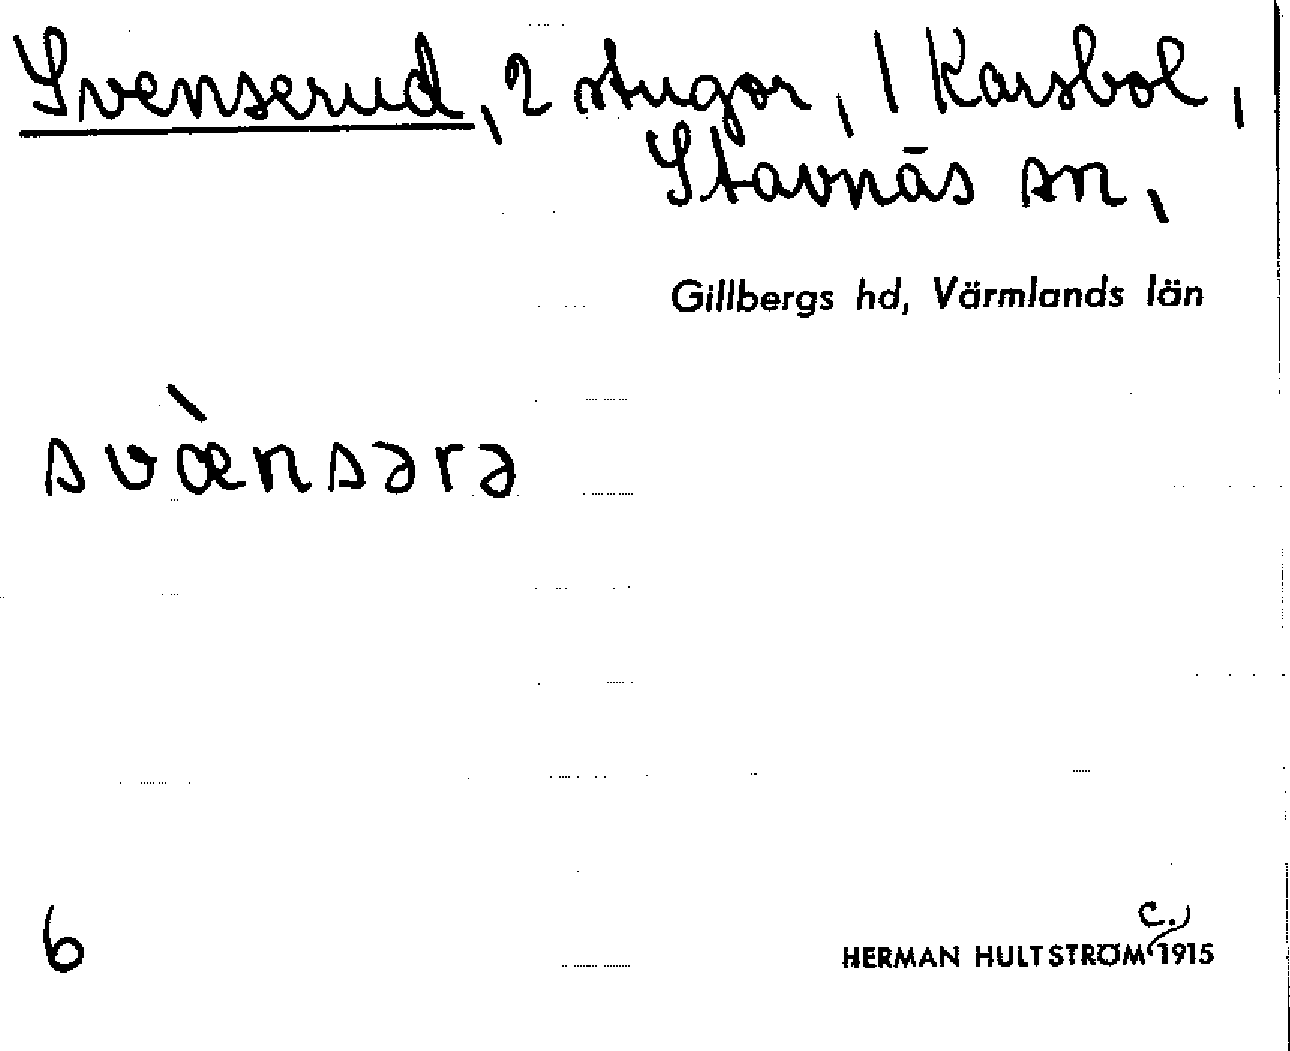 Svenserud, 2 stugor, 1 Karsbol,
Stavnäs sn,
Gillbergs hd, Värmlands län
svæ̀nsərə
6
c.
HERMAN HULTSTRÖM 1915